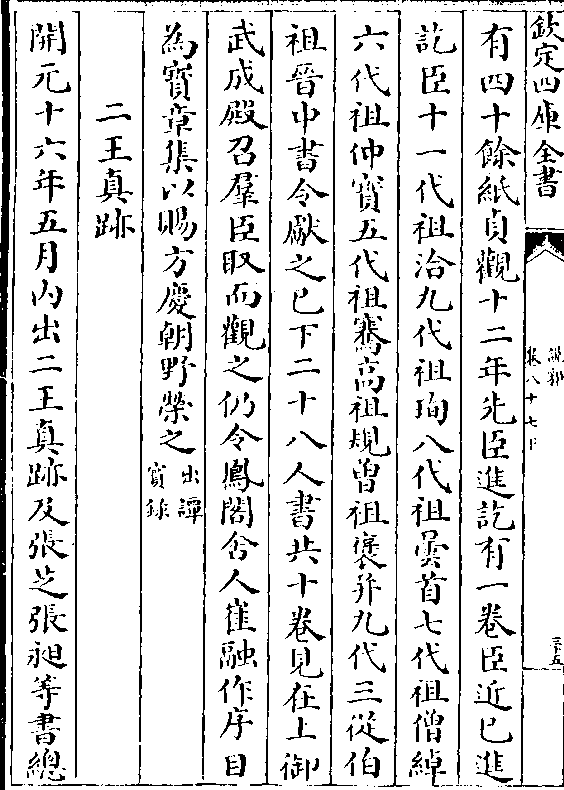 欽定四庫全書
說郛
卷八十七下
三十五
有四十餘紙貞觀十二年先臣進訖有一卷臣近已進
訖臣十一代祖洽九代祖珣八代祖曇首七代祖僧綽
六代祖仲寳五代祖騫高祖規曽祖褒并九代三從伯
祖晉中書令獻之已下二十八人書共十卷見在上御
武成殿召羣臣取而觀之仍令鳳閣舍人崔融作序目
為寳章集以賜方慶朝野榮之出譚
寳錄
二王真跡
開元十六年五月内出二王真跡及張芝張昶等書總